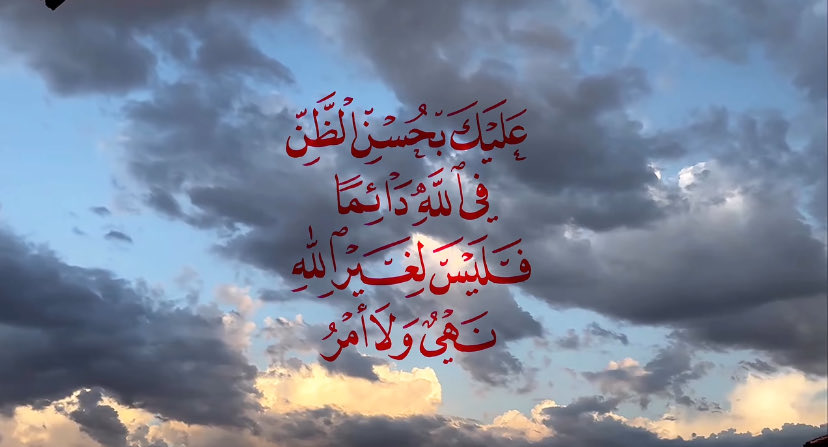 عَلَيْكَ بِحُسْنِ الظَّنِّ
فِي اللَّهِ دَائِمًا
فَلَيْسَ لِغَيْرِ اللّٰهِ
نَهْيٌ وَلَا أَمْرُ